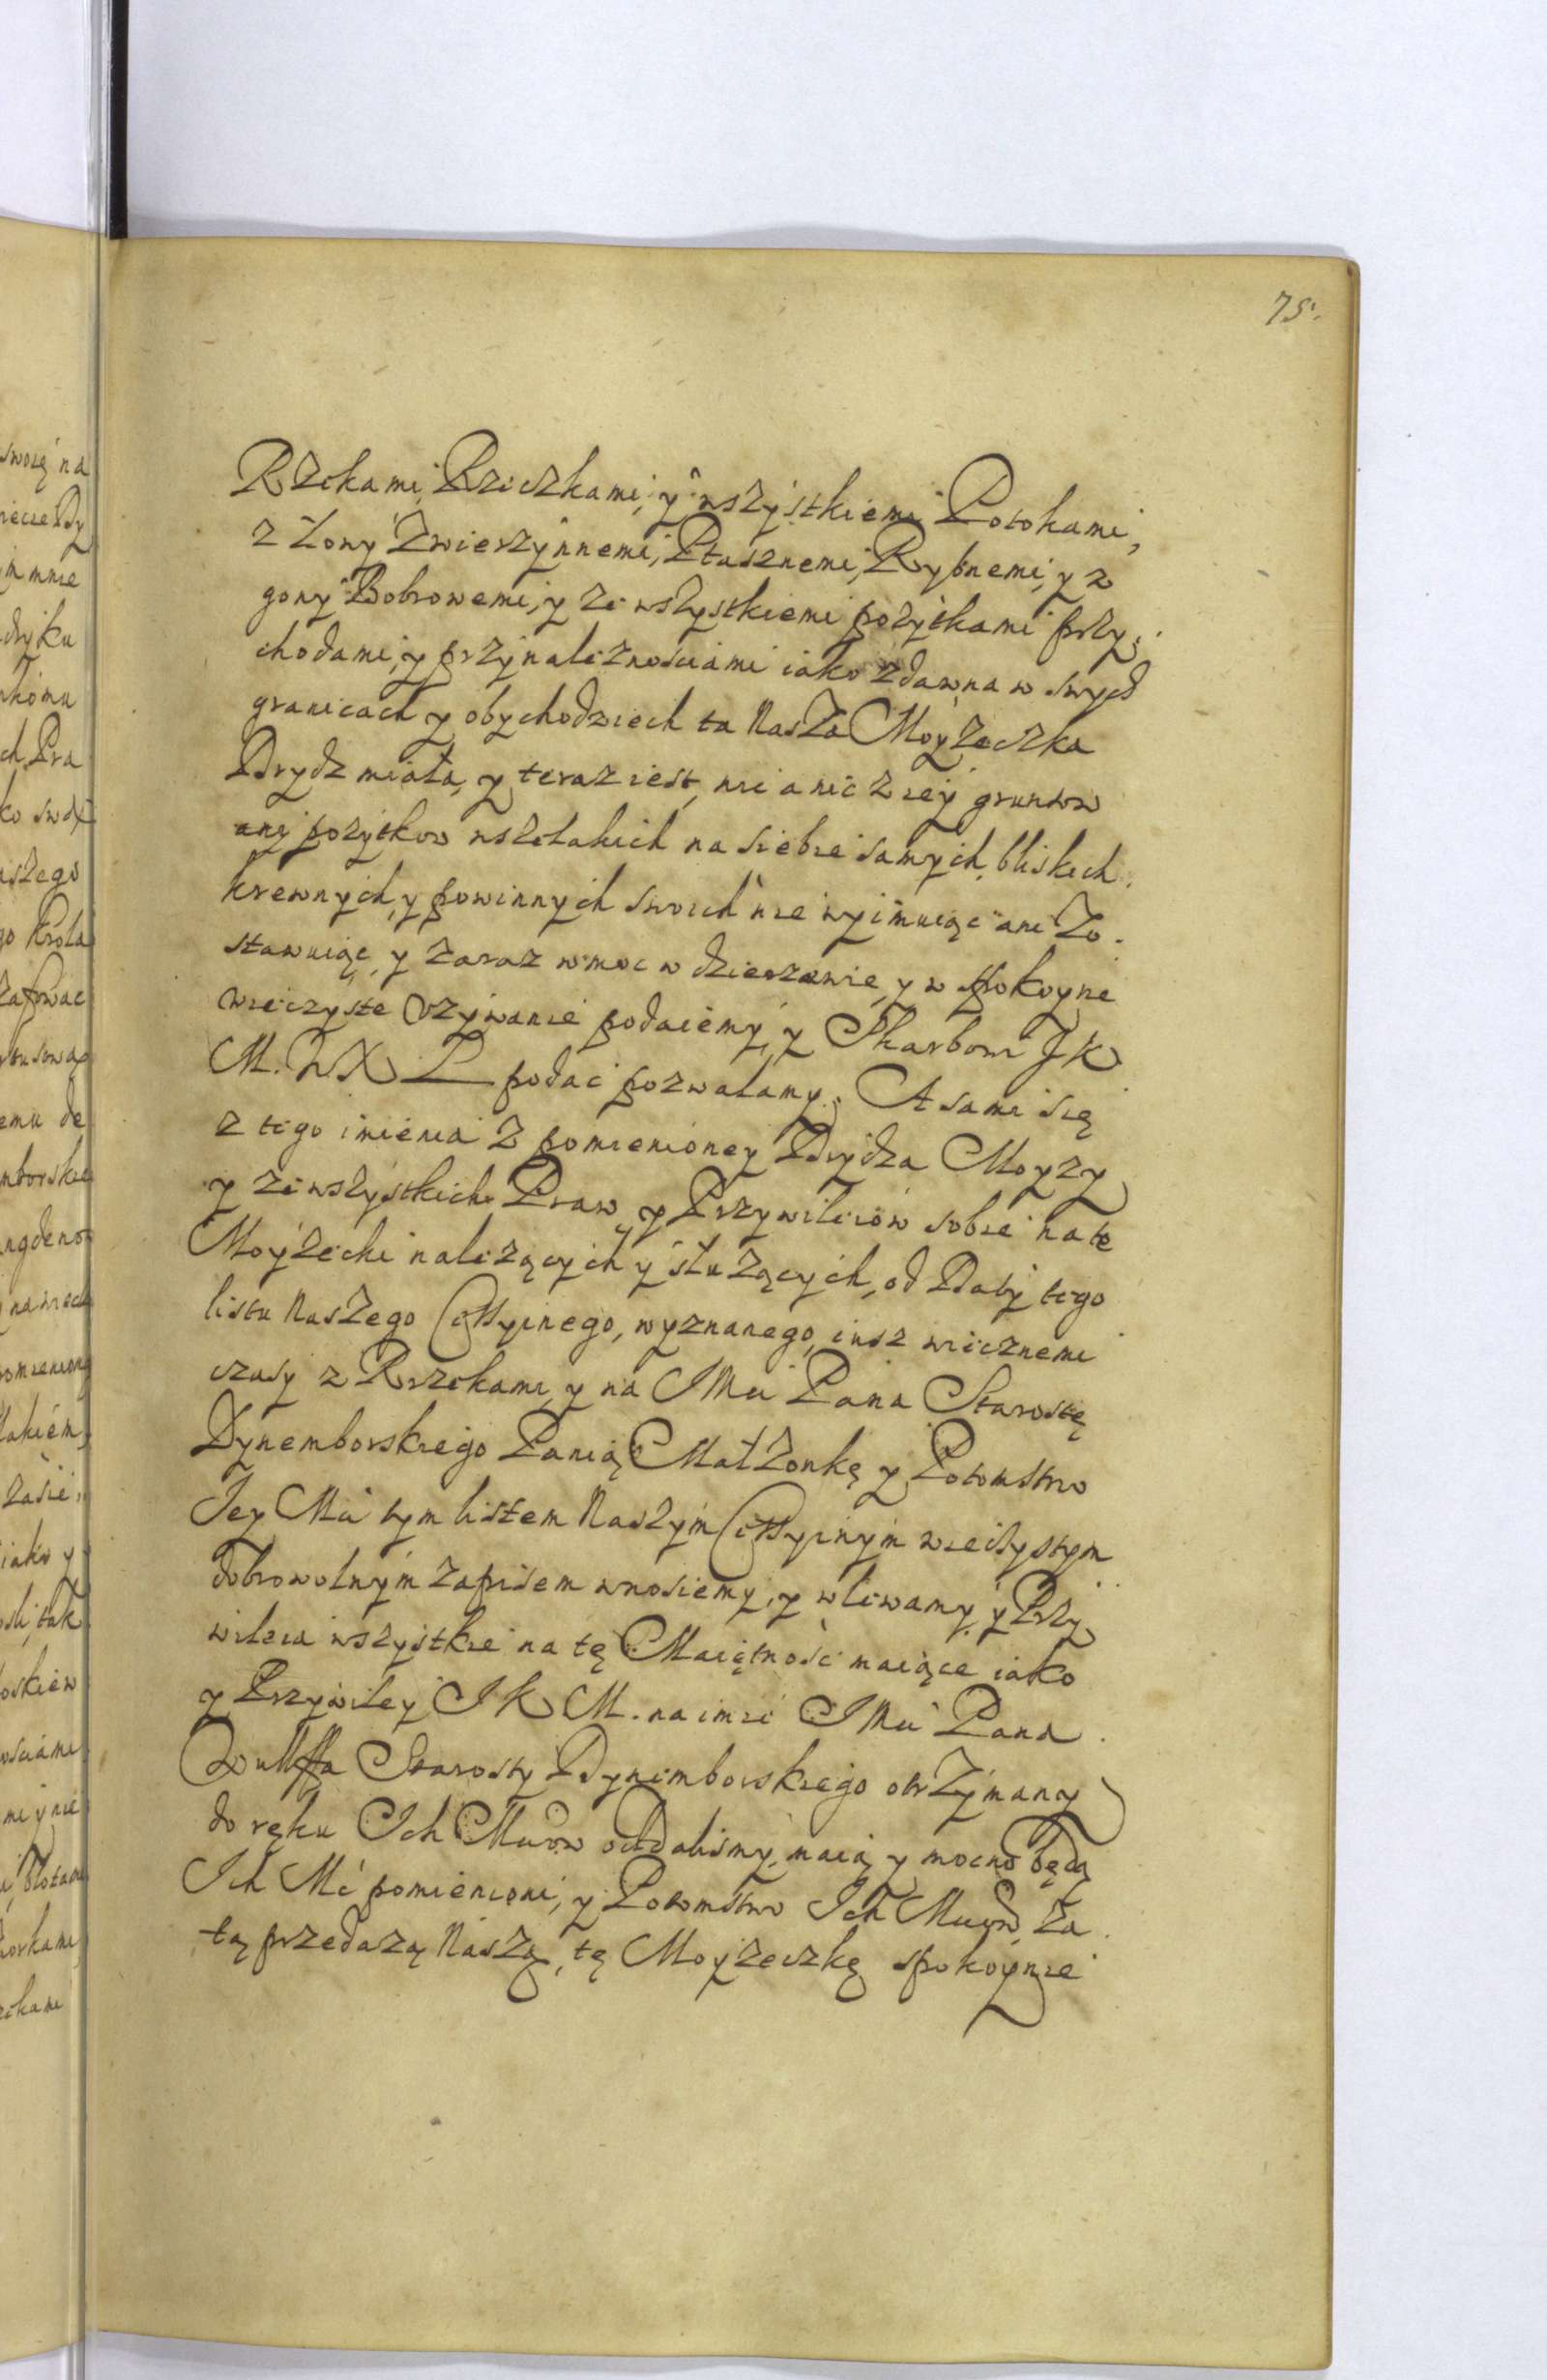 75.
Rzekami, Rzeczkami, y wszystkiemi Potokami,
z Łowy Zwierzynnemi, Ptasznemi, Rybnemi, y z
gony Bobrowemi, y ze wszystkiemi pożytkami przy,
chodami, y przynależnosciami iako zdawna w swych
granicach y obychodziech ta Nasza Moyżeczka
Drydz miała, y teraz iest, nie a nic z iey gruntow
any pożytkow wszelakich na siebie samych, bliskich
krewnych, y powinnych swoich nie wyimuiąc ani Zo.
stawuiąc, y zaraz w moc w dzierzawie, y w spokoyne
wieczyste Vzywanie podaiemy, y Skarbowi J K
M. W X L podac pozwalamy. A sami się
z tego imienia z pomienioney Drydza Moyzy
y ze wszystkich Praw y Przywileiow sobie na te
Moyżecki należących y słuzących, od Daty tego
listu Naszego Cessyinego, wyznanego, iusz wiecznemi
czasy z Rzekami, y na JMci Pana Starostę
Dynemborskiego Panią Małżonkę y Potomstwo
Jey Mci tym listem Naszym Cessyinym wieczystym
dobrowolnym zapisem wnosiemy, y wlewamy, y Przy
wileia wszystkie na tę Maiętność maiące iako
y Przywiley J K M. na imie JMci Pana
Wulffa Starosty Dynemborskiego otrzymany
do ręku Ich Mciow oddalismy, maią y mocno będą
Ich Mć pomienieni, y Potomstwo Ich Mciow, za
tą przedażą Naszą, tę Moyżeczkę spokoynie
swoię na
mnie
Pra
iszego
emu de
iako y
tak